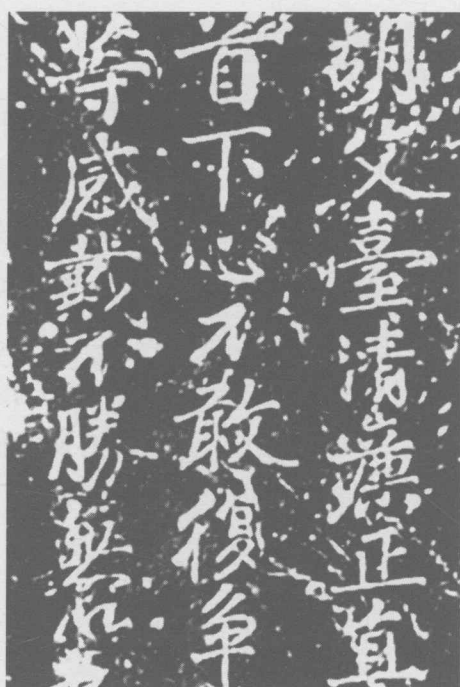 胡父臺清廉正直
首下心不敢復争
等感戴不勝無以